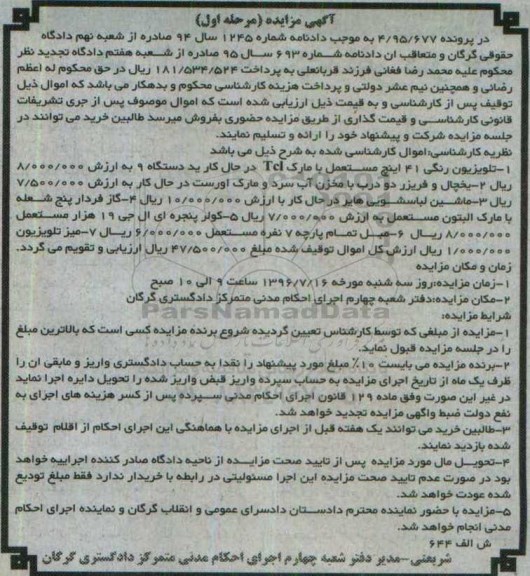 آگهی مزایده (مرحله اول)
در پرونده ۴/۹۵/۶۷۷ به موجب دادنامه شماره ۱۲۴۵ سال ۹۴ صادره از شعبه نهم دادگاه
حقوقی گرگان و متعاقب آن دادنامه شماره ۶۹۳ سال ۹۵ صادره از شعبه هفتم دادگاه تجدید نظر
محکوم علیه محمد رضا فغانی فرزند قربانعلی به پرداخت ۱۸۱/۵۳۴/۵۲۴ ریال در حق محکوم له اعظم
رضائی و همچنین نیم عشر دولتی و پرداخت هزینه کارشناسی محکوم و بدهکار می باشد که اموال ذیل
توقیف پس از کارشناسی و به قیمت ذیل ارزیابی شده است که اموال موصوف پس از جری تشریفات
قانونی کارشناسی و قیمت گذاری از طریق مزایده حضوری بفروش میرسد طالبین خرید می توانند در
جلسه مزایده شرکت و پیشنهاد خود را ارائه و تسلیم نمایند.
نظریه کارشناسی:اموال کارشناسی شده به شرح ذیل می باشد
۱-تلویزیون رنگی ۴۱ اینچ مستعمل با مارک Tcl در حال کار ید دستگاه ۹ به ارزش ۸/۰۰۰/۰۰۰
ریال ۲-یخچال و فریزر دو درب با مخزن آب سرد و مارک اورست در حال کار به ارزش ۷/۵۰۰/۰۰۰
ریال ۳-ماشین لباسشویی هایر در حال کار با ارزش ۱۰/۰۰۰/۰۰۰ ریال ۴-گاز فردار پنج شعله
با مارک البتون مستعمل به ارزش ۷/۰۰۰/۰۰۰ ریال ۵-کولر پنجره ای ال جی ۱۹ هزار مستعمل
۸/۰۰۰/۰۰۰ ریال ۶-مبل تمام پارچه ۷ نفره مستعمل ۶/۰۰۰/۰۰۰ ریال ۷-میز تلویزیون
۱/۰۰۰/۰۰۰ ریال ارزش کل اموال توقیف شده مبلغ ۴۷/۵۰۰/۰۰۰ ریال ارزیابی و تقویم می گردد.
زمان و مکان مزایده
۱-زمان مزایده:روز سه شنبه مورخه ۱۳۹۶/۷/۱۶ ساعت ۹ الی ۱۰ صبح
۲-مکان مزایده:دفتر شعبه چهارم اجرای احکام مدنی متمرکز دادگستری گرگان
شرایط مزایده:
ParsNamadData
۱-مزایده از مبلغی که توسط کارشناس تعیین گردیده شروع برنده مزایده کسی است که بالاترین مبلغ
را در جلسه مزایده قبول نماید.
۲-برنده مزایده می بایست ۱۰٪ مبلغ مورد پیشنهاد را نقدا به حساب دادگستری واریز و مابقی ان را
ظرف یک ماه از تاریخ اجرای مزایده به حساب سپرده واریز قبض واریز شده را تحویل دایره اجرا نماید
در غیر این صورت وفق ماده ۱۲۹ قانون اجرای احکام مدنی سپرده پس از کسر هزینه های اجرای به
نفع دولت ضبط واگهی مزایده تجدید خواهد شد.
۳-طالبین خرید می توانند یک هفته قبل از اجرای مزایده با هماهنگی این اجرای احکام از اقلام توقیف
شده بازدید نمایند.
۴-تحویل مال مورد مزایده پس از تایید صحت مزایده از ناحیه دادگاه صادر کننده اجراییه خواهد
بود در صورت عدم تایید صحت مزایده این اجرا مسئولیتی در رابطه با خریدار ندارد فقط مبلغ تودیع
شده عودت خواهد شد.
۵-مزایده با حضور نماینده محترم دادستان دادسرای عمومی و انقلاب گرگان و نماینده اجرای احکام
مدنی انجام خواهد شد.
ش الف ۶۴۴
شریعتی-مدیر دفتر شعبه چهارم اجرای احکام مدنی متمرکز دادگستری گرگان